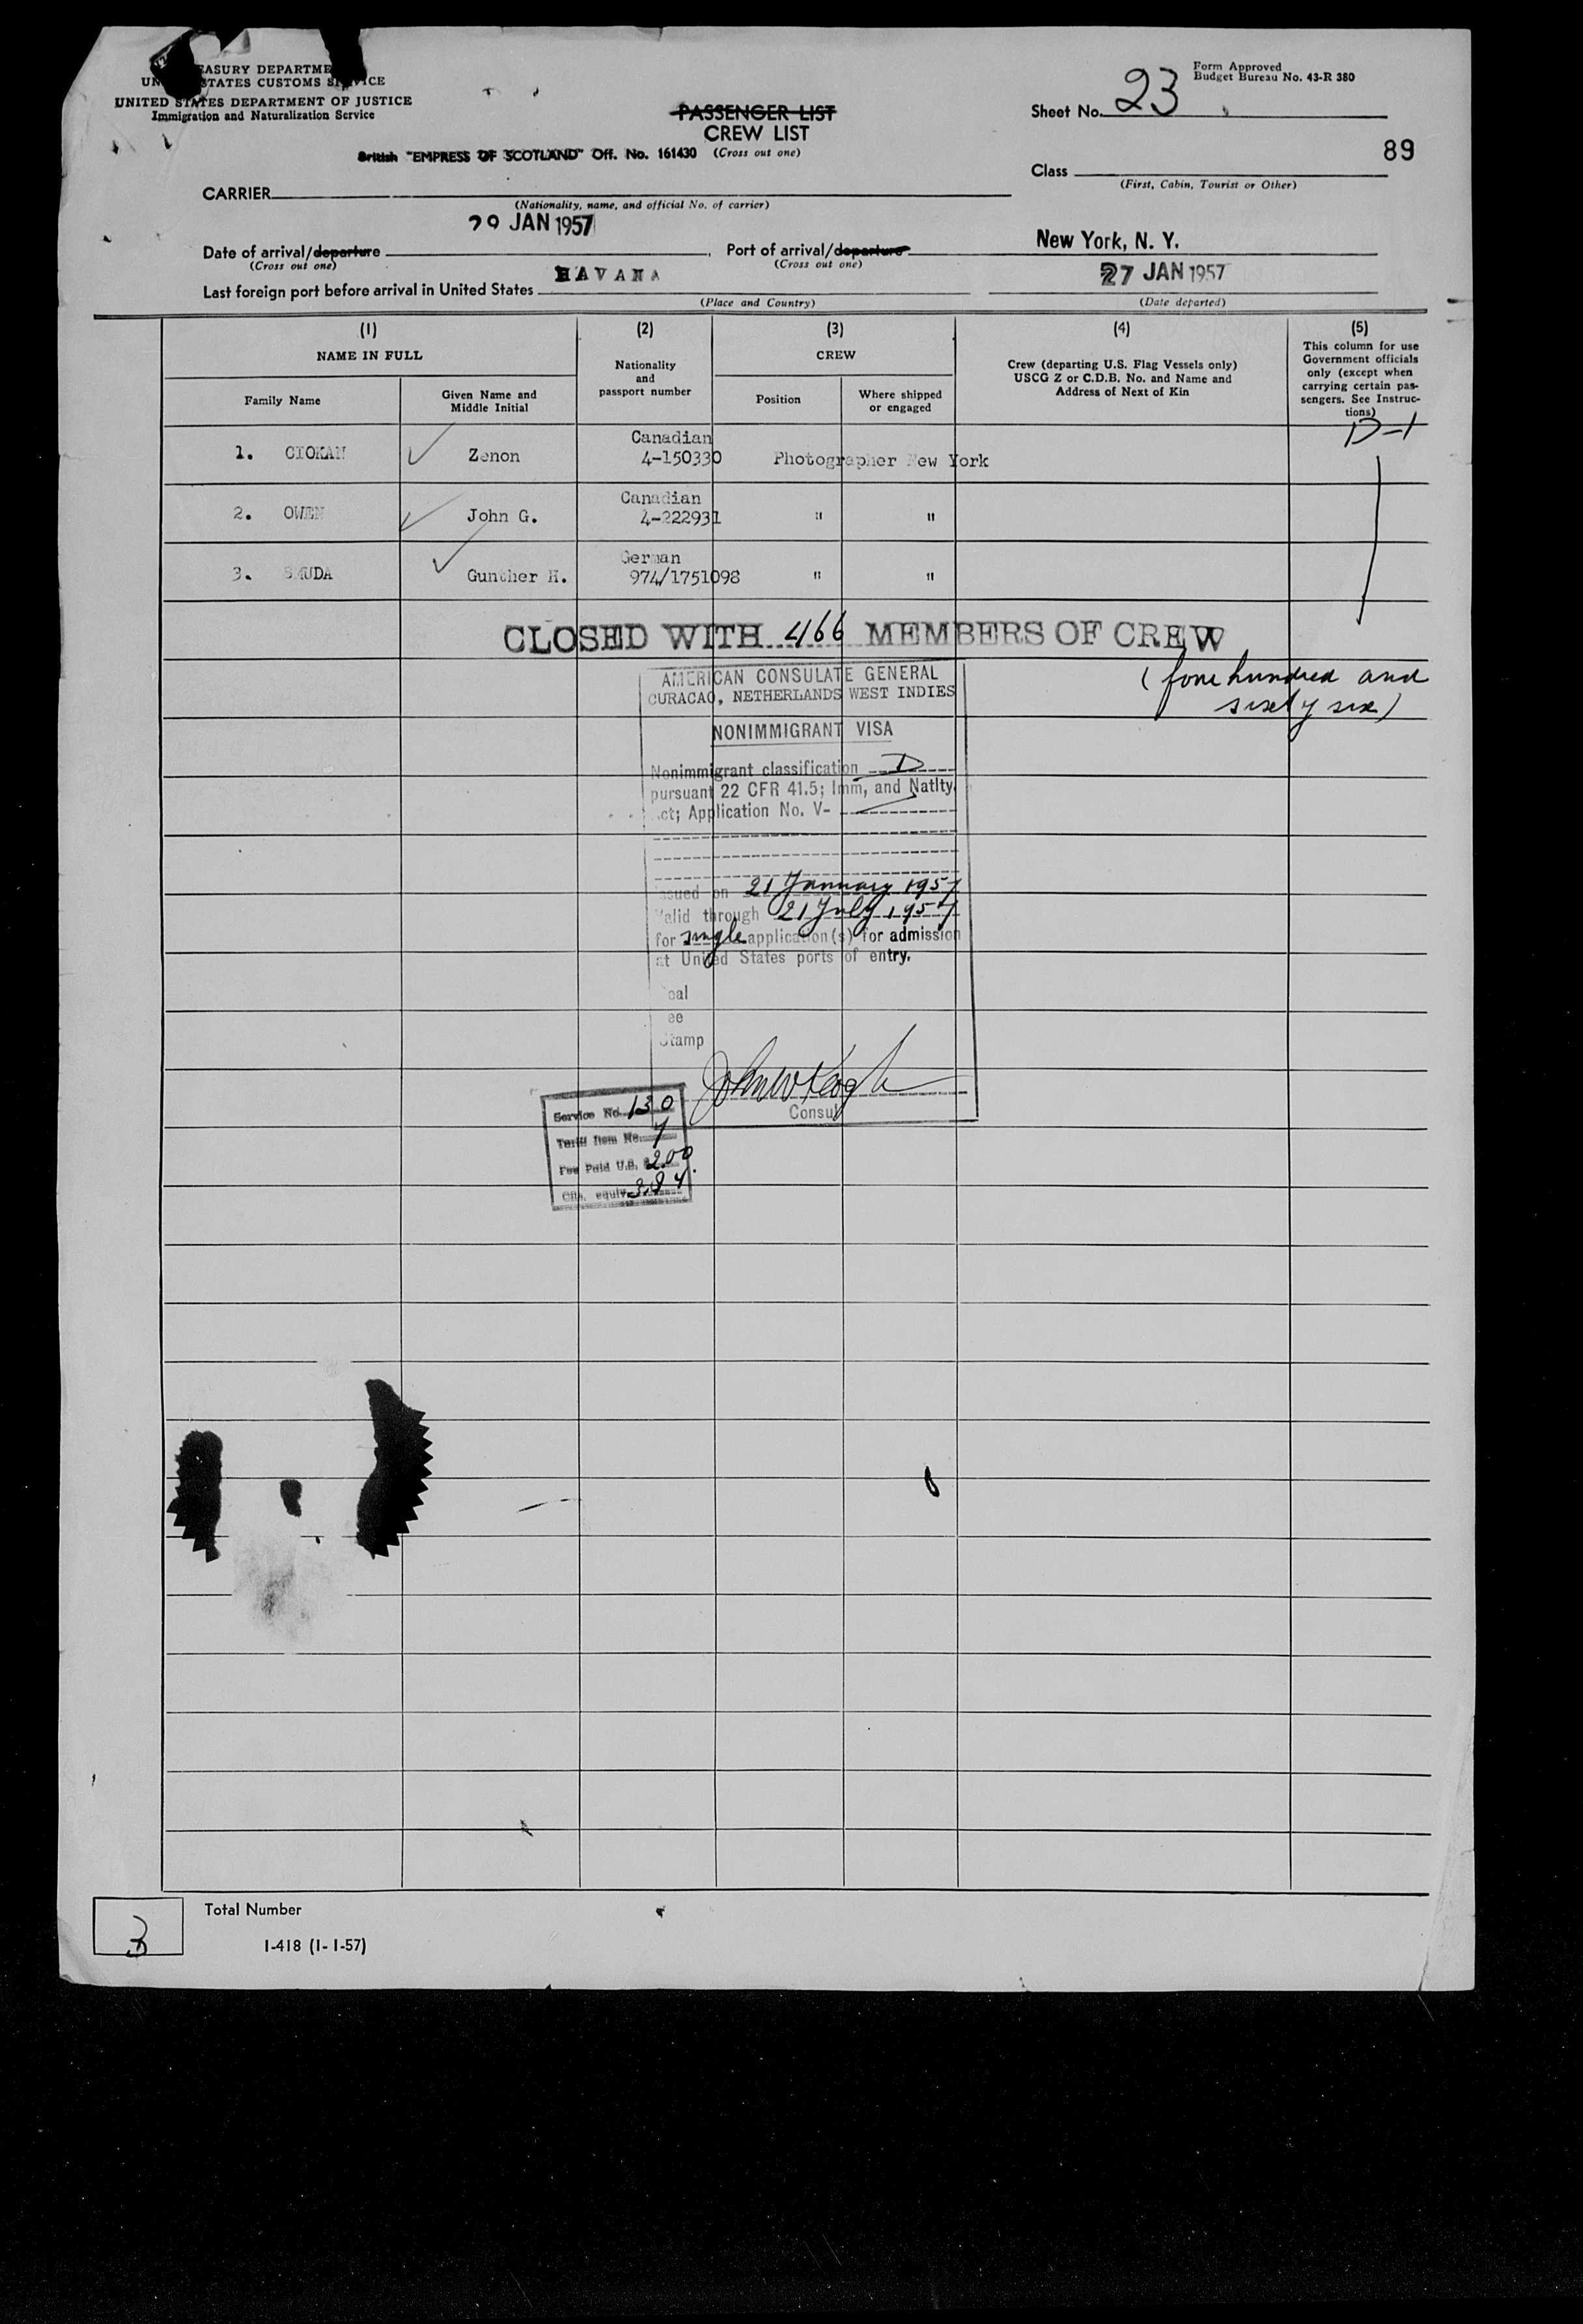 TREASURY DEPARTMENT
UNITED STATES CUSTOMS SERVICE
UNITED STATES DEPARTMENT OF JUSTICE
Immigration and Naturalization Service
Form Approved
Budget Bureau No. 43-R 380
Sheet No. 23
PASSENGER LIST
CREW LIST
(Cross out one)
British "EMPRESS OF SCOTLAND" Off. No. 161430
89
Class
(First, Cabin, Tourist or Other)
CARRIER
(Nationality, name, and official No. of carrier)
29 JAN 1957
Date of arrival/departure
(Cross out one)
Port of arrival/departure
(Cross out one)
New York, N. Y.
HAVANA
27 JAN 1957
Last foreign port before arrival in United States
(Place and Country)
(Date departed)
(1) (2) (3) (4) (5)
NAME IN FULL
Nationality
and
passport number
CREW
Crew (departing U.S. Flag Vessels only)
USCG Z or C.D.B. No. and Name and
Address of Next of Kin
This column for use
Government officials
only (except when
carrying certain pas-
sengers. See Instruc-
tions)
Family Name
Given Name and
Middle Initial
Position
Where shipped
or engaged
D-1
1. CIOKAN Zenon Canadian
4-150330 Photographer New York
2. OWEN John G. Canadian
4-222931 " "
3. SMUDA Gunther H. German
974/1751098 " "
CLOSED WITH 466 MEMBERS OF CREW
(four hundred and
sixty six)
AMERICAN CONSULATE GENERAL
CURACAO, NETHERLANDS WEST INDIES
NONIMMIGRANT VISA
Nonimmigrant classification D
pursuant 22 CFR 41.5; Imm, and Natlty.
Act; Application No. V-
Issued on 21 January 1957
Valid through 21 July 1957
for single application(s) for admission
at United States ports of entry.
Seal
Fee
Stamp
John W Keogh
Consul
Service No. 130
Tariff Item No. 7
Fee Paid U.S. $ 2.00
equiv. 3.84
3
Total Number
I-418 (1-1-57)